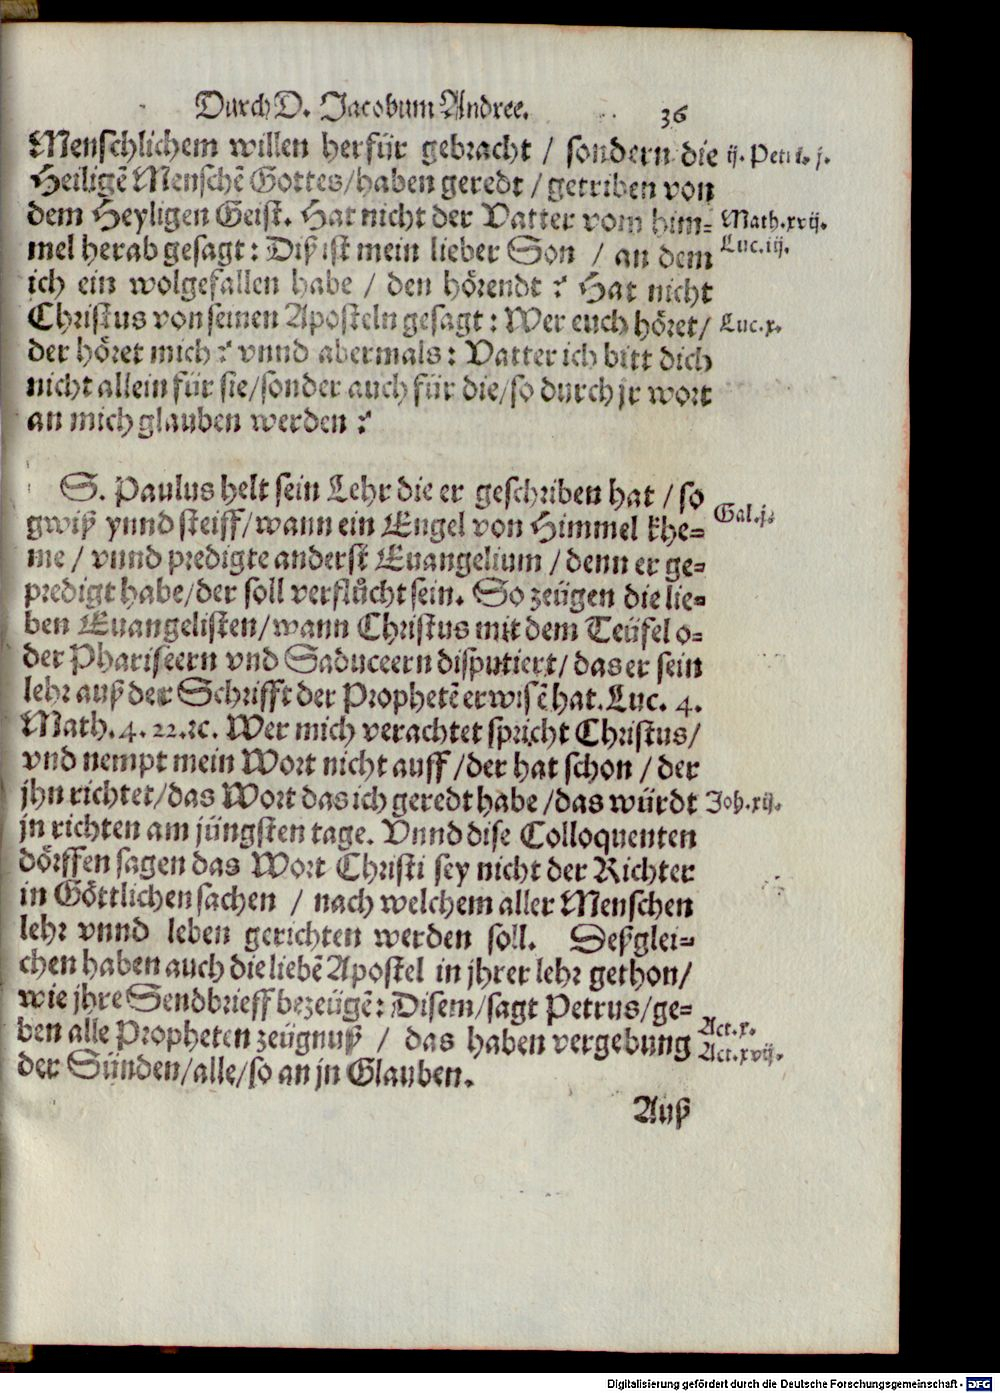 Durch D. Jacobum Andree. 36
Menschlichem willen herfür gebracht / sondern die ij. Petri. j.
Heiligē Menschē Gottes/haben geredt / getriben von
dem Heyligen Geist. Hat nicht der Vatter vom him= Math.xvij.
mel herab gesagt: Diß ist mein lieber Son / an dem Luc.iij.
ich ein wolgefallen habe / den hörendt ? Hat nicht
Christus von seinen Aposteln gesagt: Wer euch höret/ Luc.x.
der höret mich ? vnnd abermals: Vatter ich bitt dich
nicht allein für sie/sonder auch für die/so durch jr wort
an mich glauben werden ?
S. Paulus helt sein Lehr die er geschriben hat / so
gwiß vnnd steiff/wann ein Engel von Himmel khe= Gal.j.
me / vnnd predigte anderst Euangelium / denn er ge=
predigt habe/der soll verflůcht sein. So zeügen die lie=
ben Euangelisten/wann Christus mit dem Teüfel o=
der Phariseern vnd Saduceern disputiert/das er sein
lehr auß der Schrifft der Prophetē erwisē hat. Luc. 4.
Math. 4. 22.ꝛc. Wer mich verachtet spricht Christus/
vnd nempt mein Wort nicht auff /der hat schon / der
jhn richtet/das Wort das ich geredt habe /das würdt Joh.xij.
jn richten am jüngsten tage. Vnnd dise Colloquenten
dörffen sagen das Wort Christi sey nicht der Richter
in Göttlichen sachen / nach welchem aller Menschen
lehr vnnd leben gerichten werden soll. Deßglei=
chen haben auch die liebē Apostel in jhrer lehr gethon/
wie jhre Sendbrieff bezeügē: Disem/sagt Petrus/ge=
ben alle Propheten zeügnuß / das haben vergebung Act.x.
der Sünden/alle/so an jn Glauben. Act.xvij.
Auß
Digitalisierung gefördert durch die Deutsche Forschungsgemeinschaft - DFG